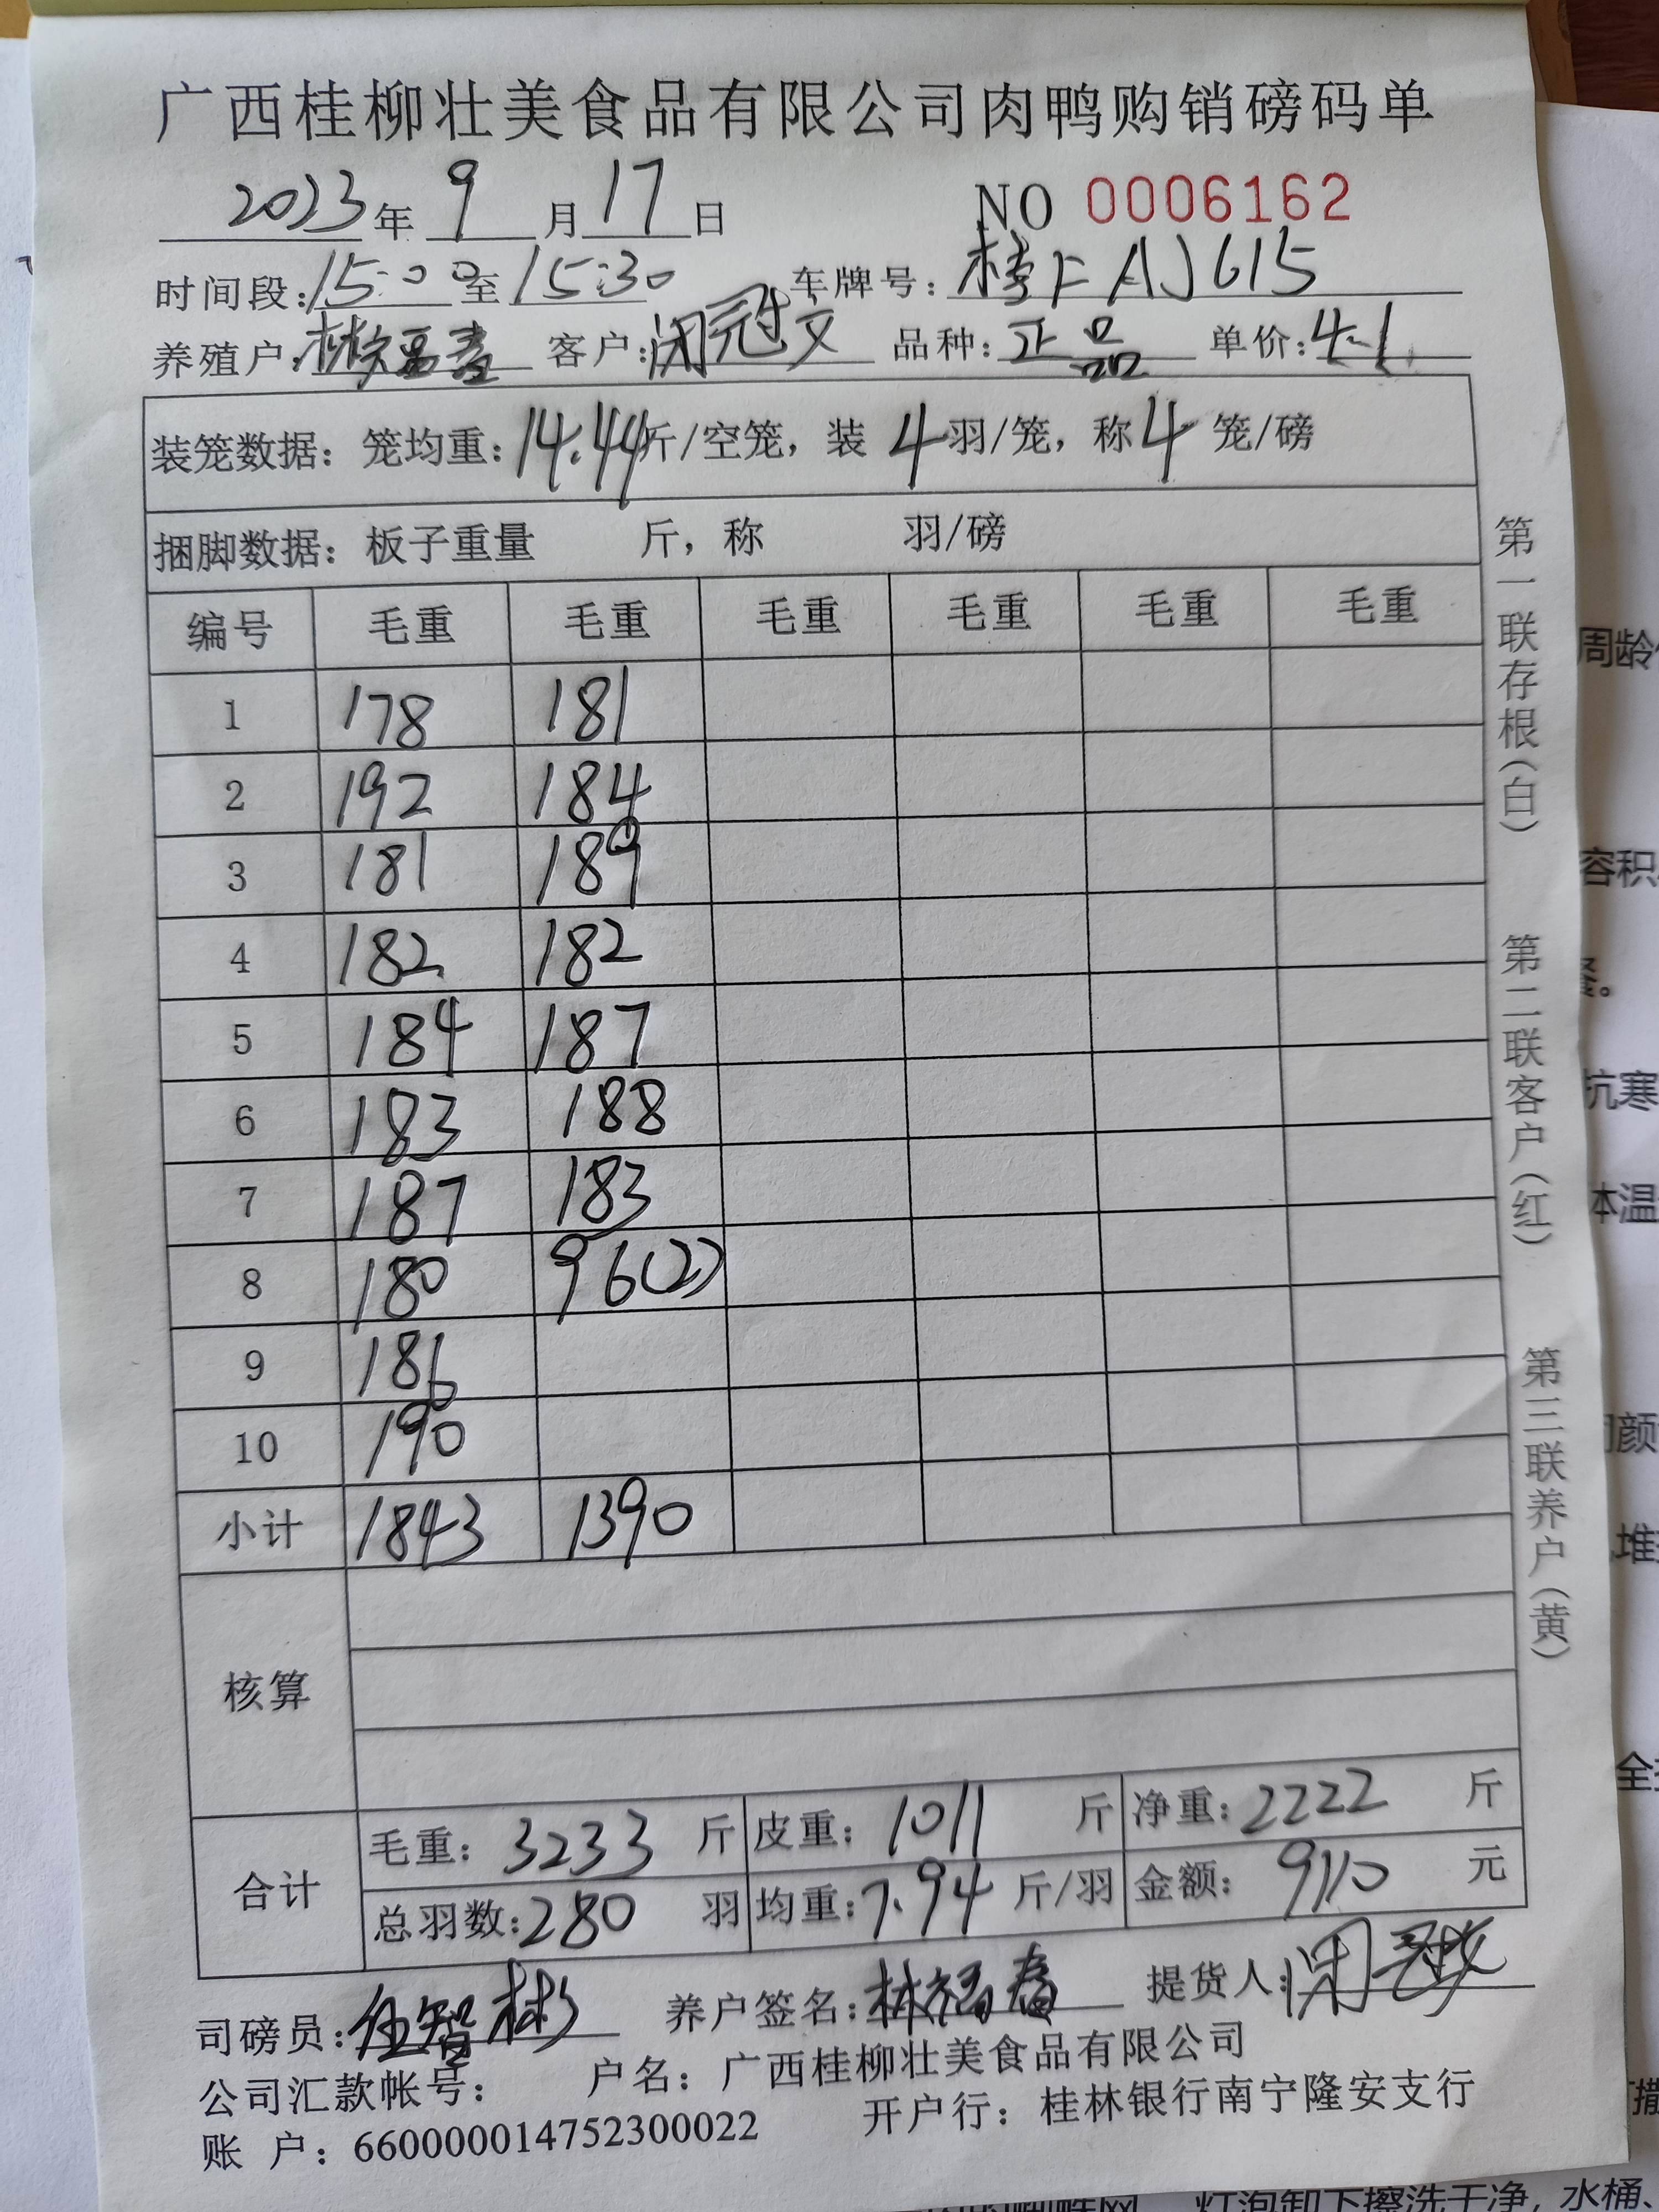 广西桂柳壮美食品有限公司肉鸭购销磅码单
2023年 9 月 17 日 NO 0006162
时间段: 15:00 至 15:30 车牌号: 桂FAJ615
养殖户: 林福春 客户: 闭冠文 品种: 正品 单价: 4.1
装笼数据: 笼均重: 14.44 斤/空笼, 装 4 羽/笼, 称 4 笼/磅
捆脚数据: 板子重量 斤, 称 羽/磅
编号 毛重 毛重 毛重 毛重 毛重 毛重
1 178 181
2 192 184
3 181 189
4 182 182
5 184 187
6 183 188
7 187 183
8 180 96(2)
9 186
10 190
小计 1843 1390
核算
合计
毛重: 3233 斤 皮重: 1011 斤 净重: 2222 斤
总羽数: 280 羽 均重: 7.94 斤/羽 金额: 9110 元
司磅员: 智彬 养户签名: 林福春 提货人: 闭冠文
公司汇款帐号: 户名: 广西桂柳壮美食品有限公司
账 户: 660000014752300022 开户行: 桂林银行南宁隆安支行
第一联存根(白) 第二联客户(红) 第三联养户(黄)
周龄
容积
抗寒
体温
颜
堆
全
撒
灯泡卸下擦洗干净, 水桶、